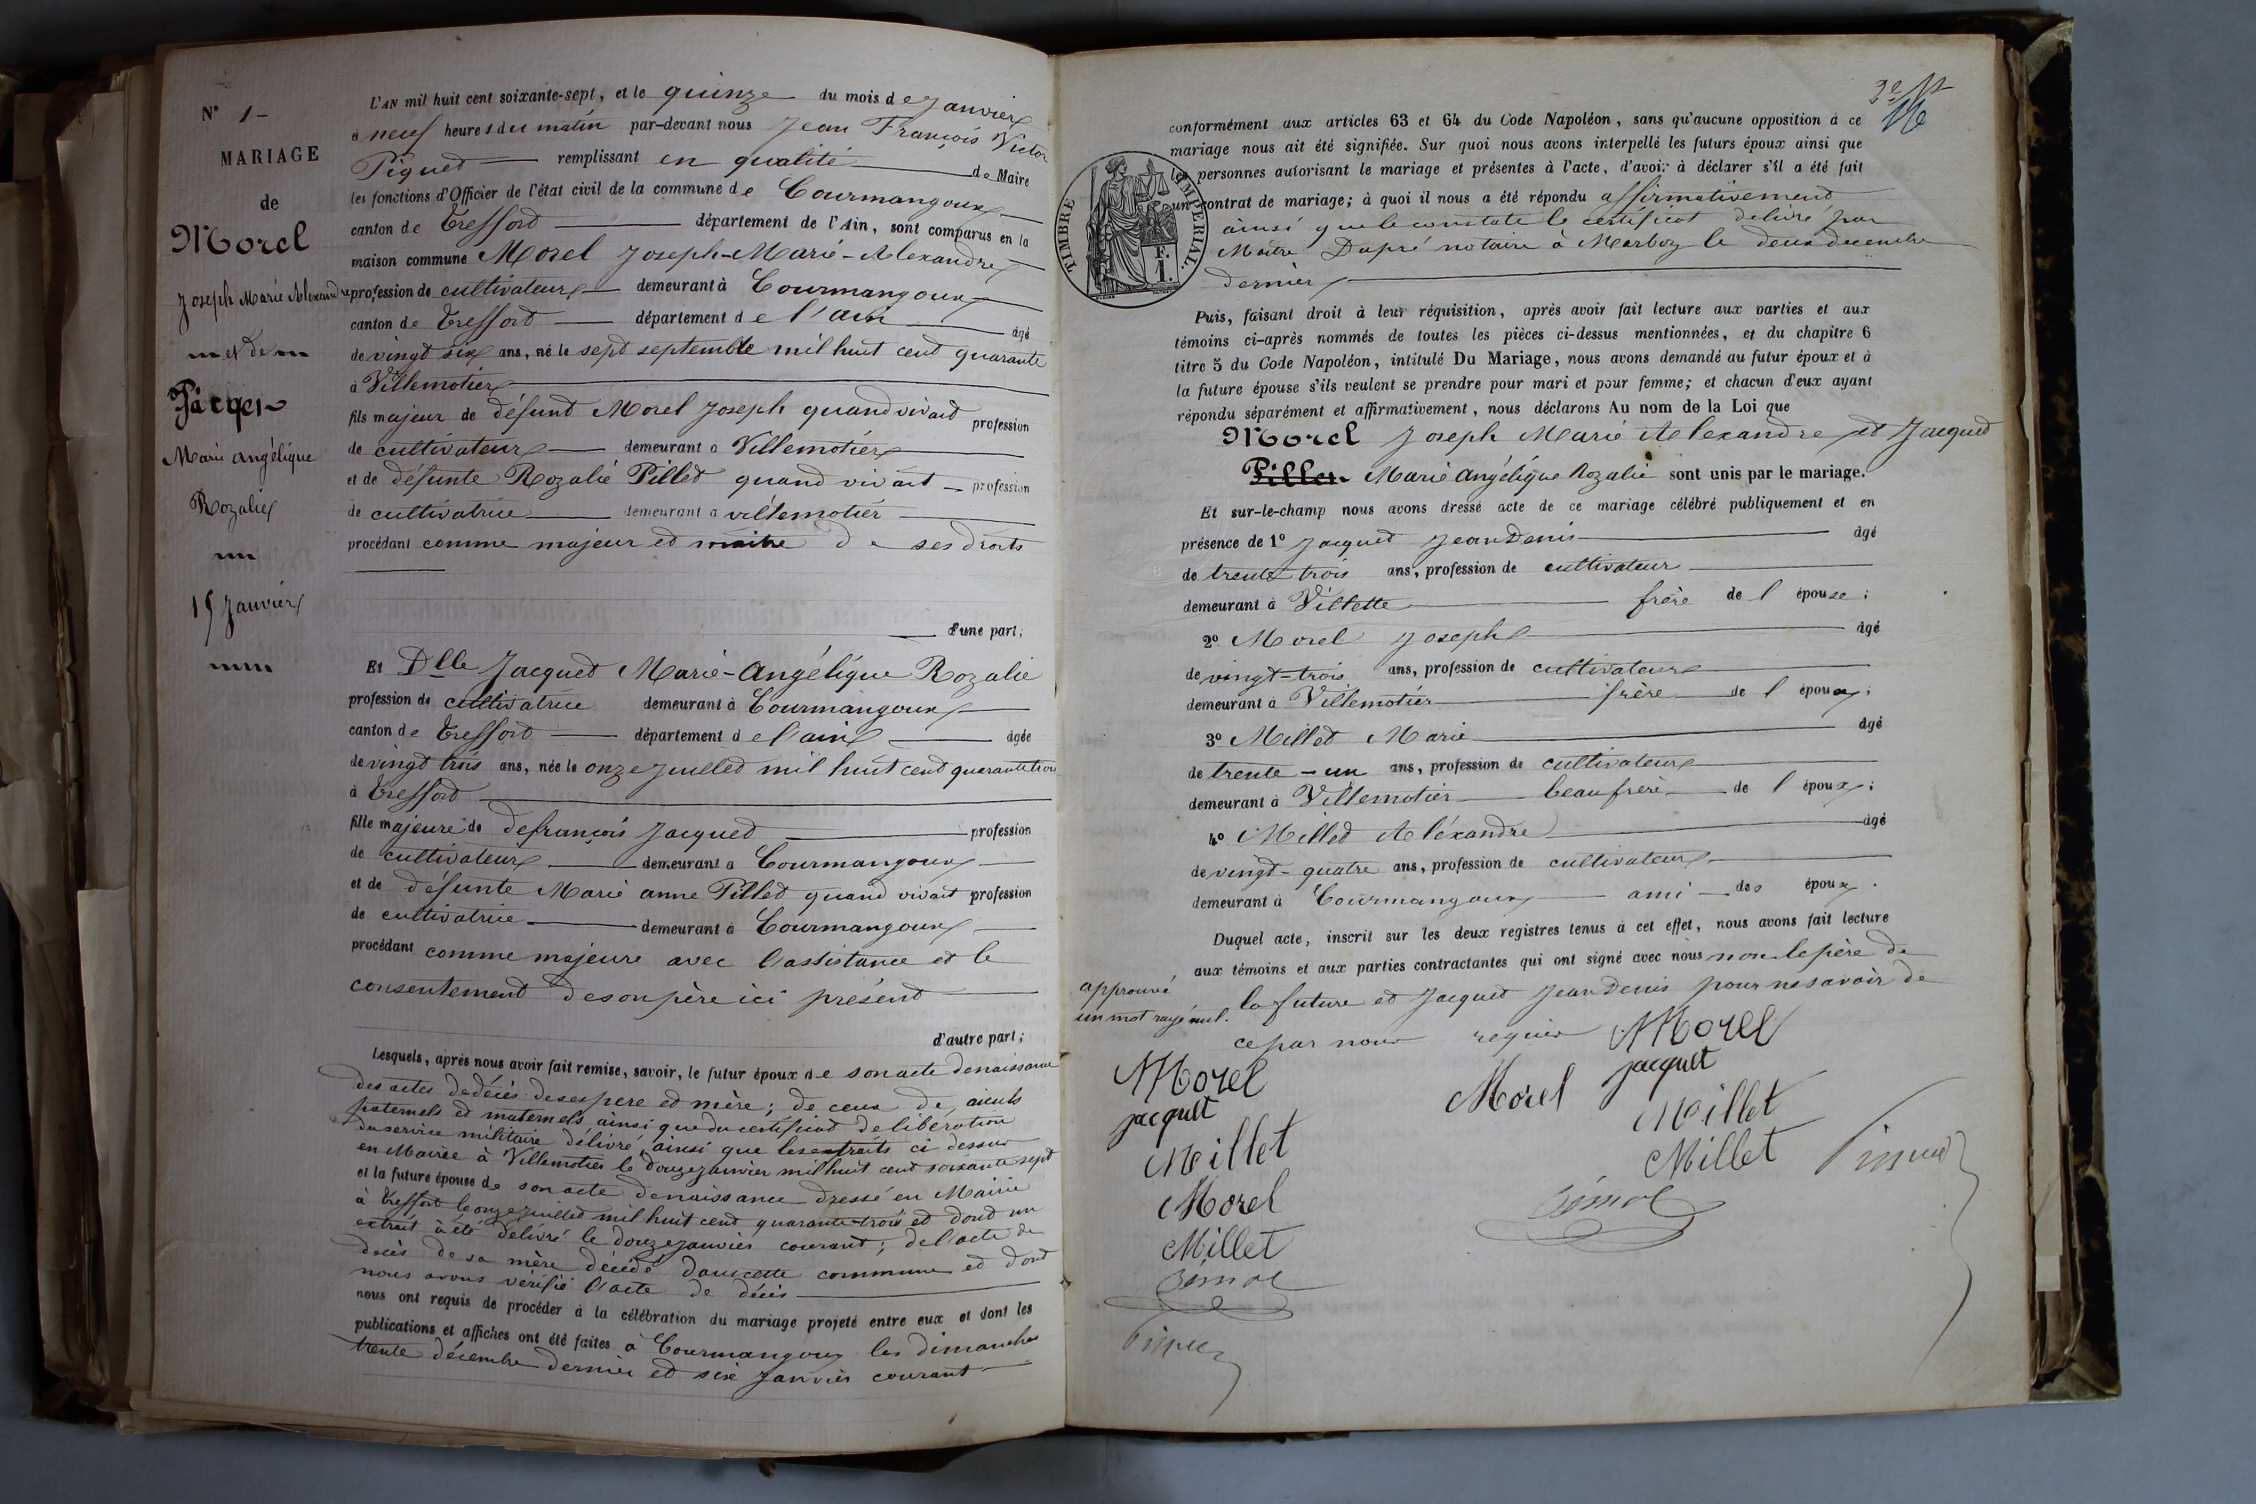 N° 1
MARIAGE
de
Morel
Joseph Marie Alexandre
et de
Marie angélique
Rozalie
15 Janvier
L'AN mil huit cent soixante-sept, et le quinze du mois de Janvier
à neuf heures du matin par-devant nous Jean François Victor
Piquet remplissant en qualité de Maire
les fonctions d'Officier de l'état civil de la commune de Courmangoux
canton de Treffort département de l'Ain, sont comparus en la
maison commune Morel Joseph-Marie-Alexandre
profession de cultivateur demeurant à Courmangoux
canton de Treffort département de l'ain âgé
de vingt six ans, né le sept septembre mil huit cent quarante
à Villemotier
fils majeur de défunt Morel Joseph quand vivait profession
de cultivateur demeurant à Villemotier
et de défunte Rozalie Pillet quand vivait profession
de cultivatrice demeurant à villemotier
procédant comme majeur et maitre de ses droits
d'une part;
Et Dlle Jacquet Marie-Angélique Rozalie
profession de cultivatrice demeurant à Courmangoux
canton de Treffort département de l'ain âgée
de vingt trois ans, née le onze juillet mil huit cent quarante trois
à Treffort
fille majeure de de françois Jacquet profession
de cultivateur demeurant à Courmangoux
et de défunte Marie anne Pillet quand vivait profession
de cultivatrice demeurant à Courmangoux
procédant comme majeure avec l'assistance et le
consentement de son père ici présent
d'autre part;
Lesquels, après nous avoir fait remise, savoir, le futur époux de son acte de naissance
des actes de décès de ses pere et mère; de ceux de aieuls
paternels et maternels ainsi que du certificat de libération
du service militaire délivré, ainsi que les extraits ci dessus
en Mairie à Villemotier le douze janvier mil huit cent soixante sept
et la future épouse de son acte de naissance dressé en Mairie
à Treffort le onze juillet mil huit cent quarante-trois et dont un
extrait à été délivré le douze janvier courant; de l'acte de
décès de sa mère décédé dans cette commune et dont
nous avons vérifié l'acte de décès
nous ont requis de procéder à la célébration du mariage projeté entre eux et dont les
publications et affiches ont été faites à Courmangoux les dimanches
trente décembre dernier et six janvier courant
16
conformément aux articles 63 et 64 du Code Napoléon, sans qu'aucune opposition à ce
mariage nous ait été signifiée. Sur quoi nous avons interpellé les futurs époux ainsi que
les personnes autorisant le mariage et présentes à l'acte, d'avoir à déclarer s'il a été fait
un contrat de mariage; à quoi il nous a été répondu affirmativement
ainsi que le constate le certificat delivré par
Maitre Dupré notaire à Marboz le deux decembre
dernier
TIMBRE IMPERIAL
F.
1.
Puis, faisant droit à leur réquisition, après avoir fait lecture aux parties et aux
témoins ci-après nommés de toutes les pièces ci-dessus mentionnées, et du chapitre 6
titre 5 du Code Napoléon, intitulé Du Mariage, nous avons demandé au futur époux et à
la future épouse s'ils veulent se prendre pour mari et pour femme; et chacun d'eux ayant
répondu séparément et affirmativement, nous déclarons Au nom de la Loi que
Morel Joseph Marie Alexandre et Jacquet
Pillet Marie Angélique Rozalie sont unis par le mariage.
Et sur-le-champ nous avons dressé acte de ce mariage célébré publiquement et en
présence de 1° Jacquet Jean Denis âgé
de trente trois ans, profession de cultivateur
demeurant à Villette frère de l'épouse;
2° Morel Joseph âgé
de vingt-trois ans, profession de cultivateur
demeurant à Villemotier frère de l'époux;
3° Millet Marie âgé
de trente-un ans, profession de cultivateur
demeurant à Villemotier beau frère de l'époux;
4° Millet Aléxandre âgé
de vingt-quatre ans, profession de cultivateur
demeurant à Courmangoux ami des époux.
Duquel acte, inscrit sur les deux registres tenus à cet effet, nous avons fait lecture
aux témoins et aux parties contractantes qui ont signé avec nous non le père de
la future et Jacquet Jean Denis pour ne savoir de
ce par nous requis
approuvé
un mot rayé nul.
Morel
jacquet
Morel
Millet
Millet
Morel
jacquet
Millet
Morel
Millet